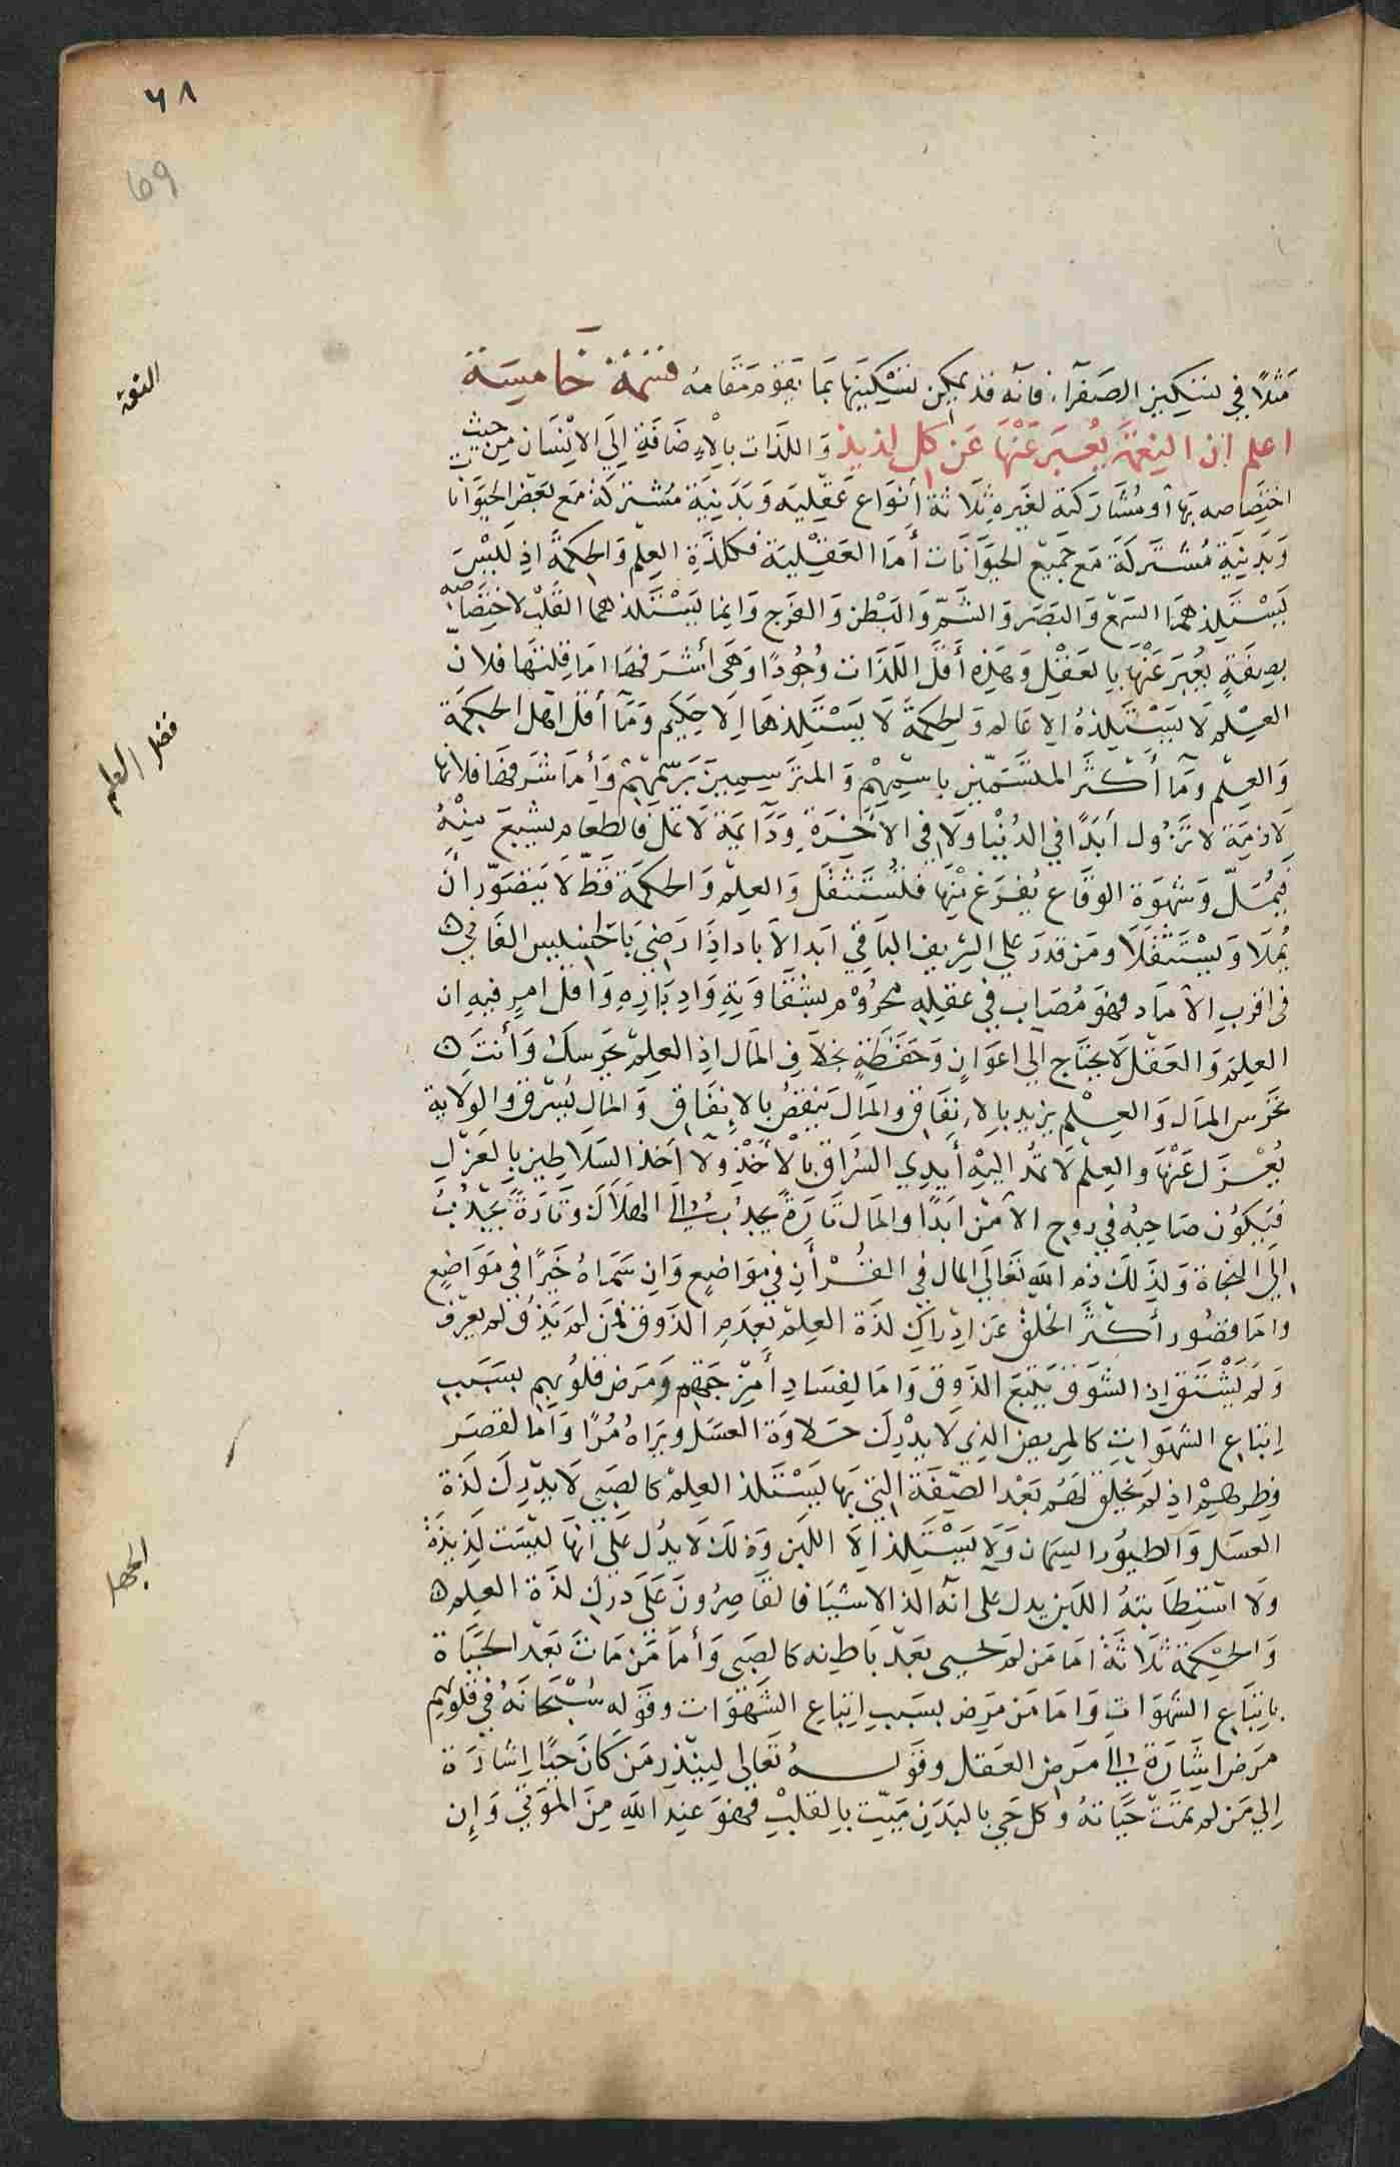 ٦٨
69
النعمة
مَثلًا في تسكين الصفرآء فانه قد يمكن تسكينها بما يقوم مقامه قسمة خامسة
اعلم ان النعمة يُعبر عَنْهَا عَن كل لذيذ وَاللذات بالإضَافة إلي الانسَان من حيث
اختصَاصه بهَا أو مُشاركته لغيره ثلاثة أنوَاع عَقليه وَبَدنيّة مُشتركة مَع بَعض الحيوَانات
وَبَدنيّة مُشتركَة مَع جَميع الحيوَانَات أمَا العَقليّة فكلذّةِ العِلم وَالحِكمة اذ ليْسَ
يَسْتَلِذهمَا السّمْعِ وَالبَصَر وَالشّمّ وَالبَطن وَالفَرج وَانما يَسْتَلذهما القَلبْ لاختصَاصه
بصِفَةٍ يُعبَر عَنْهَا بالعَقْل وَهَذِه أَقلّ اللّذات وُجُودًا وَهي أشرَفهَا امَا قِلتهَا فلان
العِلم لا يَسْتَلِذهُ الا عَالم وَالحِكمةَ لا يَسْتَلِذهَا إلا حَكِيم وَمَا أقلّ اهل الحِكمَة
وَالعِلم وَمَا أكثَر المتَسمّين باسْمِهِمْ وَالمترسمِينَ بَرسْمِهِمْ وَأمَا شَرفهَا فلانها
لازمَة لا تزُول أبَدًا في الدُنْيا وَلا في الآخِرَة وَدَآئمَة لا تملّ فالطعَام يشبعَ مِنْهُ
فيُمَلّ وَشهوَة الوقَاع يُفرغ مِنْهَا فتُسْتَثقَل وَالعِلم وَالحكمَة قَطّ لا يَتصوّر أن
يُملّا وَيُسْتَثقلَا ومَن قدَرَ علي الشريف البَاقي ابد الآباد إذَا رَضيَ بالخسِيس الفَاني
في اقرب الآمَاد فهوَ مُصَاب في عقلِه محرُوْم بشقَاوَتهِ وَادبَارِهِ وَاقل امرٍ فيه ان
العِلمَ وَالعَقل لا يحتَاج إلي اعوَانٍ وَحَفَظَةٍ بخلافِ المَال اذِ العِلمْ يحرسكَ وَأنتَ
تحَرس المَال وَالعِلْم يزيد بالإنفَاق وَالمَال يَنقصُ بالإنفَاقِ وَالمَال يُسْرق وَالوِلاية
يُعْزَل عَنْهَا وَالعِلْم لا تمتد اليْهِ أيْدِي السُرّاق بالأَخْذِ وَلا اَخذ السَلاطين بالعَزْل
فيَكوُن صَاحِبُه في روح الأمن ابَدًا وَالمَال تَارةً يجذِبُ إلَى الهلَاك وَتَارةً يَجْذبُ
إلَى النجَاة وَلذَلكَ ذم الله تعَالَي المال في القُرْأن في مَوَاضِعٍ وَان سَمّاهُ خَيرًا في مَوَاضِعٍ
وامَا قصُور أكثَر الخلق عَن ادْراكِ لذة العِلم لعِدَم الذوق فمن لم يَذُق لم يعْرف
وَلمْ يَشْتَقْ اذ الشوَق يَتْبَعَ الذوق وَامَا لفسَادِ أمزِجَتهمْ وَمَرض قلُوبهم بسَبَب
اتبَاع الشهَوَاتِ كالمريض الذي لا يدْرك حَلاوَة العسَل وَيرَاهُ مُرًا وَامَا لقصَر
فطرهِمْ اذ لم تخلق لهَم بَعْد الصّفَة التي بها يَستَلذ العِلْمْ كالصَبي لا يُدْرِك لذة
العسَل وَالطيوُر السِمَان وَلا يَسْتَلِذ الا اللبَن وَذلكَ لا يدُل عَلي انهَا ليْسَت لَذِيذَة
وَلا اسْتِطَابَتهُ اللّبَن يدل على انه الذ الاشيَا فالقَاصِرُونَ عَلَى دَركِ لذة العِلم
وَالحِكمة ثَلاثَة امَا مَن لم يحيى بَعْد بَاطِنه كالصَبي وَأمَا مَن مَاتَ بَعْد الحيَاة
باتبَاع الشَهوَاتِ وَامَا مَن مَرِض بسَبَبِ اتبَاع الشَهَوَات وقوله سُبْحَانهُ في قلوبهم
مرَض اشَارَة إلى مَرض العَقل وقوله تعَالي ليُنْذِر مَن كَانَ حَيًّا إشارَة
إلي مَن لم تمُتْ حَيَاتهُ وكل حَي بالبَدَن مَيّت بالقلبْ فهوَ عند الله مِنَ الموْتي وَإن
فضل العلم
الجهل